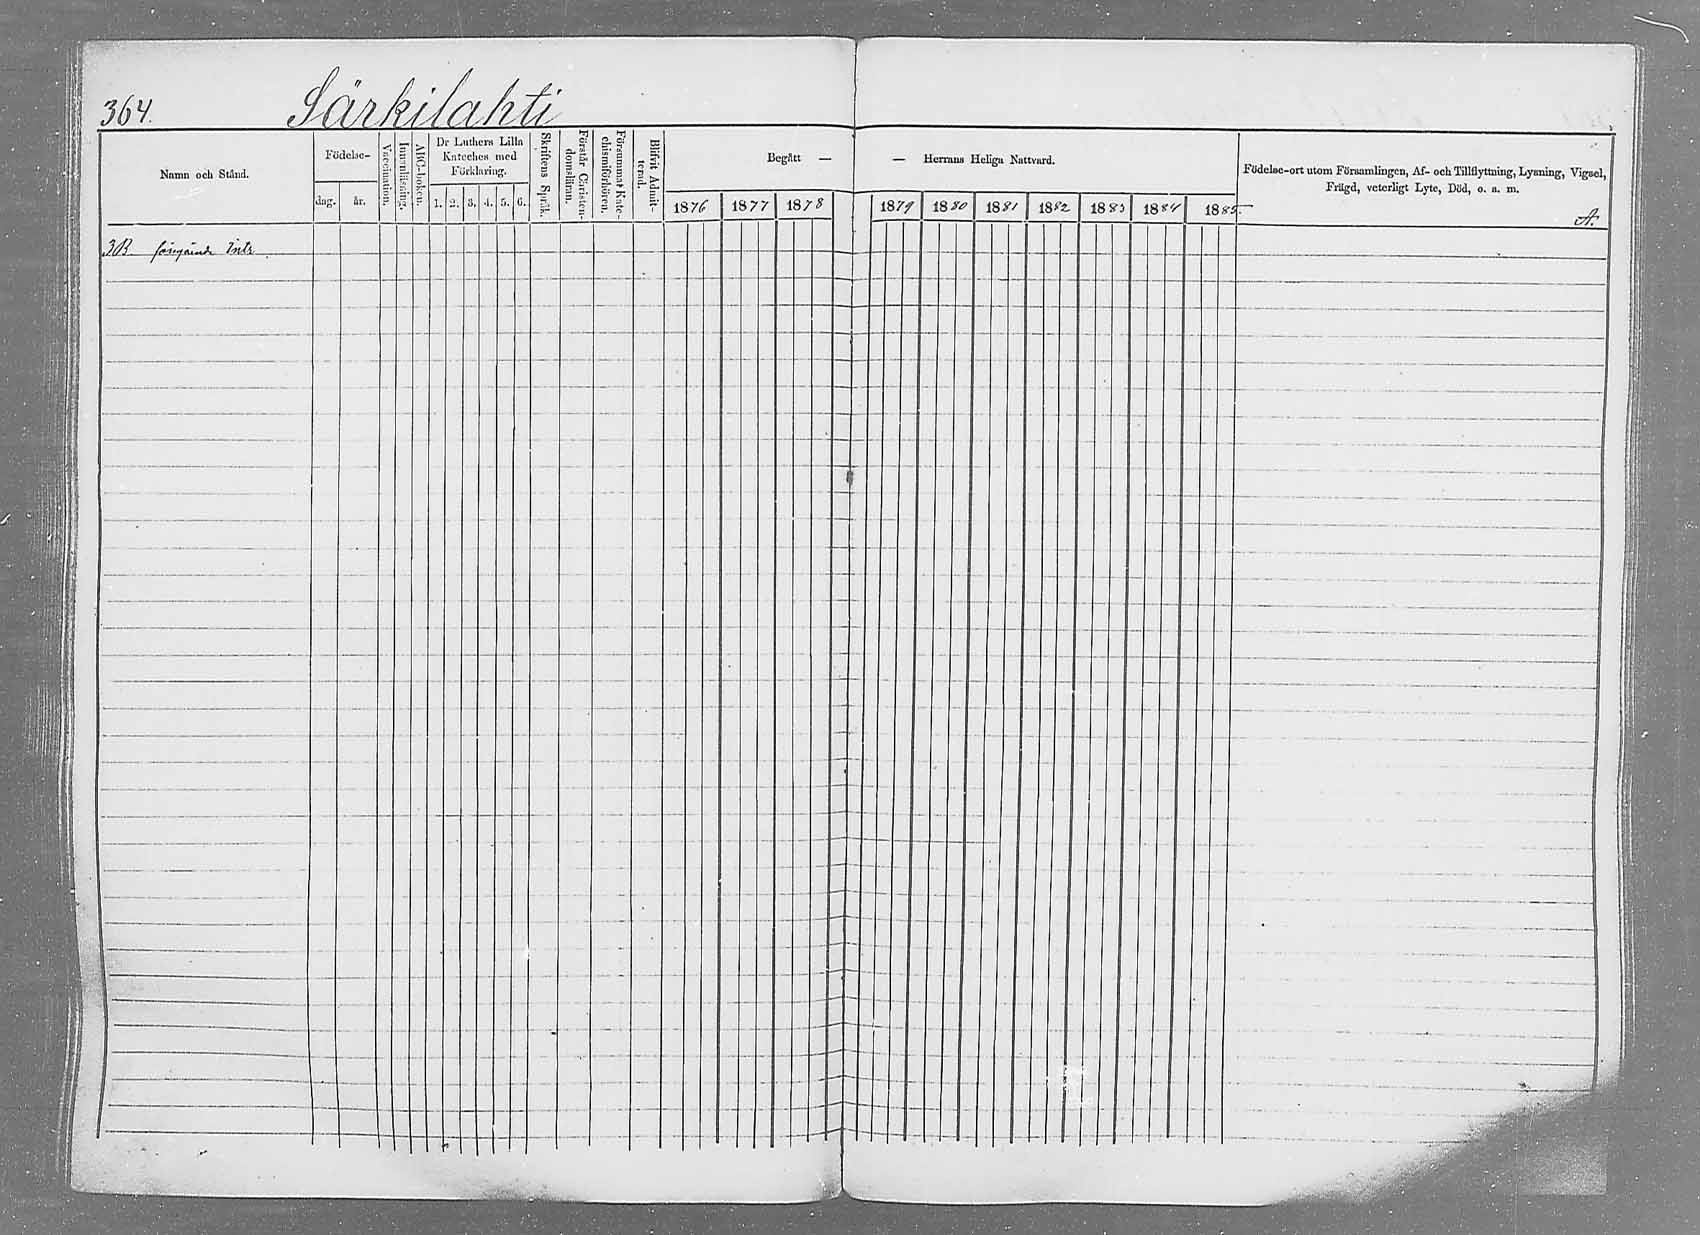 364.
Särkilahti
Namn och Stånd.
Födelse-
dag.
år.
Vaccination.
Innanläsning.
ABC-boken.
Dr Luthers Lilla
Kateches med
Förklaring.
1. 2. 3. 4. 5. 6.
Skriftens Språk.
Förstår Christen-
domsläran.
Försummat Kate-
chismiförhören.
Blifvit Admit-
terad.
Begått —
— Herrans Heliga Nattvard.
1876 1877 1878 1879 1880 1881 1882 1883 1884 1885
Födelse-ort utom Församlingen, Af- och Tillflyttning, Lysning, Vigsel,
Frägd, veterligt Lyte, Död, o. s. m.
A.
3B